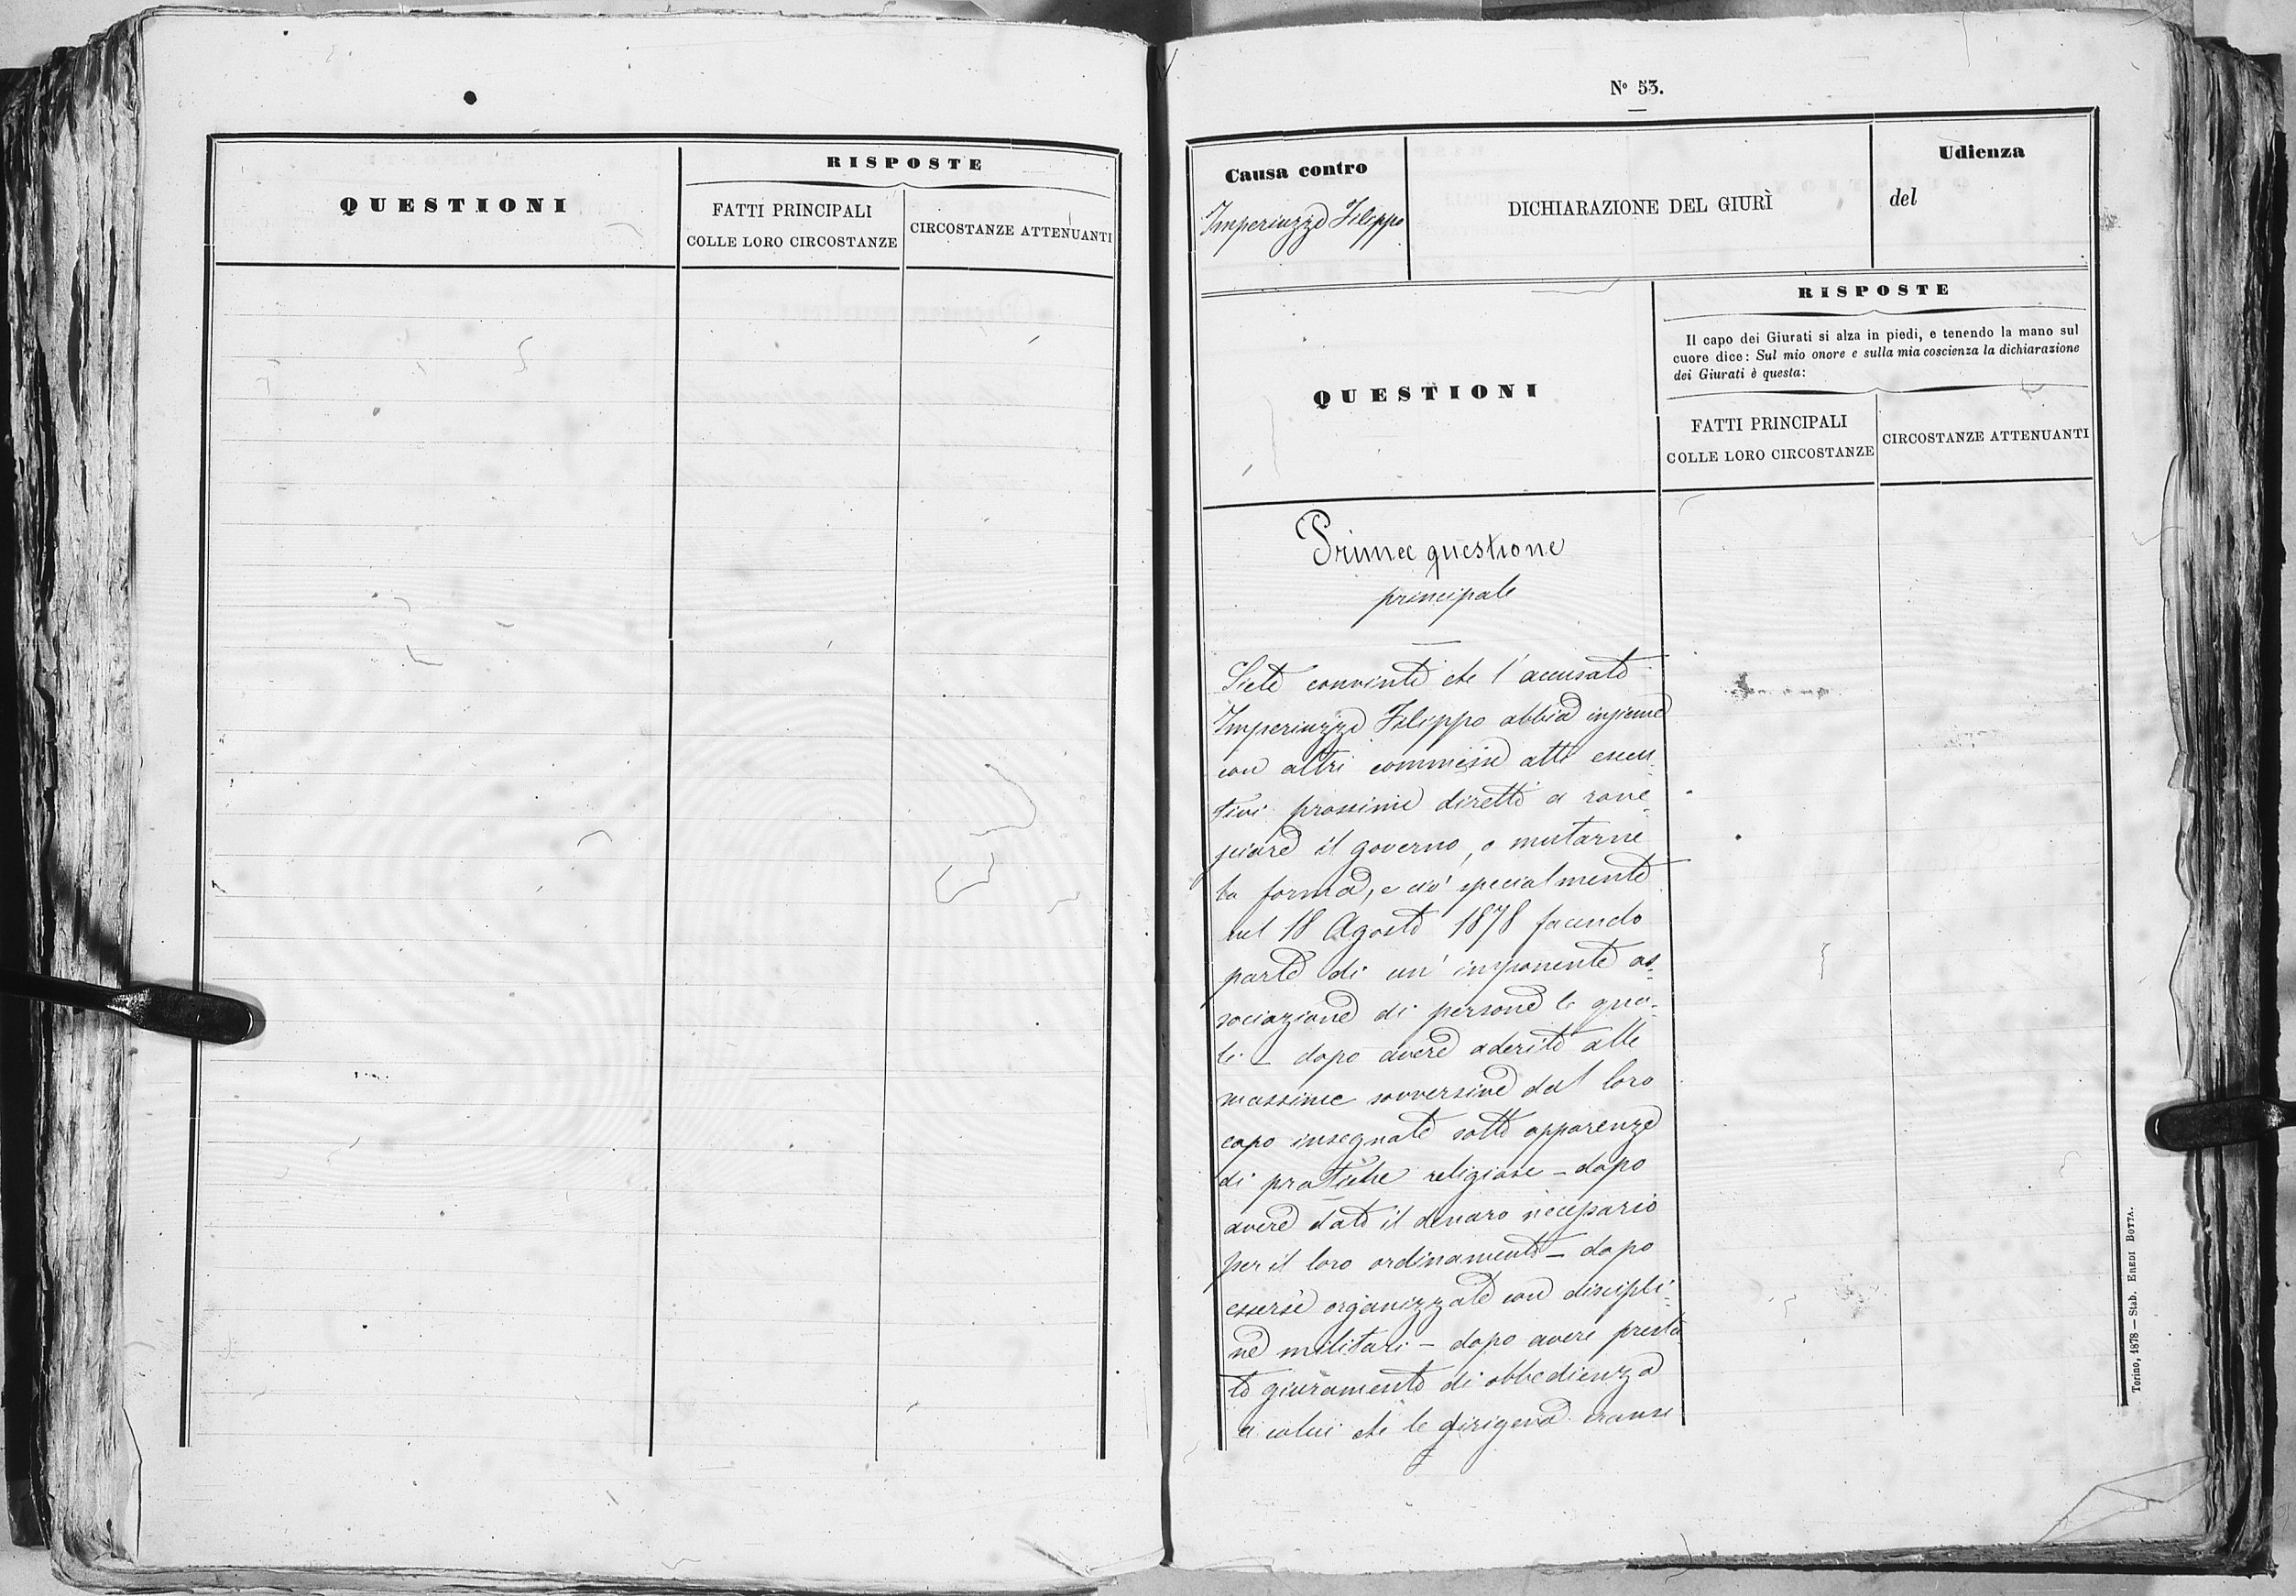 QUESTIONI
RISPOSTE
FATTI PRINCIPALI
COLLE LORO CIRCOSTANZE
CIRCOSTANZE ATTENUANTI
N° 53.
Causa contro
Imperiuzzi Filippo
DICHIARAZIONE DEL GIURÌ
Udienza
del
QUESTIONI
RISPOSTE
Il capo dei Giurati si alza in piedi, e tenendo la mano sul
cuore dice: Sul mio onore e sulla mia coscienza la dichiarazione
dei Giurati è questa:
FATTI PRINCIPALI
COLLE LORO CIRCOSTANZE
CIRCOSTANZE ATTENUANTI
Prima questione
principale
Siete convinti che l'accusato
Imperiuzzi Filippo abbia insieme
con altri commessi atti esecu-
tivi prossimi diretti a rove-
sciare il governo, o mutarne
la forma, e ciò specialmente
nel 18 Agosto 1878 facendo
parte di un' imponente as-
sociazione di persone le qua-
li – dopo avere aderito alle
massime sovversive dal loro
capo insegnate sotto apparenze
di pratiche religiose – dopo
avere dato il denaro necessario
per il loro ordinamento – dopo
essersi organizzate con discipli-
ne militari – dopo avere presta
to giuramento di obbedienza
a colui che le dirigeva eransi
Torino, 1878 — Stab. EREDI BOTTA.